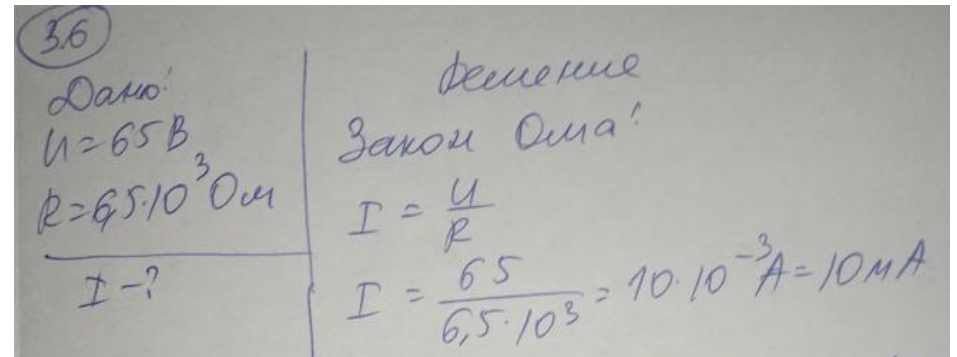 3.6
Дано:
U=65В
R=6,5·10³Ом
I-?
Решение
Закон Ома:
I = U/R
I = 65/6,5·10³ = 10·10⁻³А = 10мА